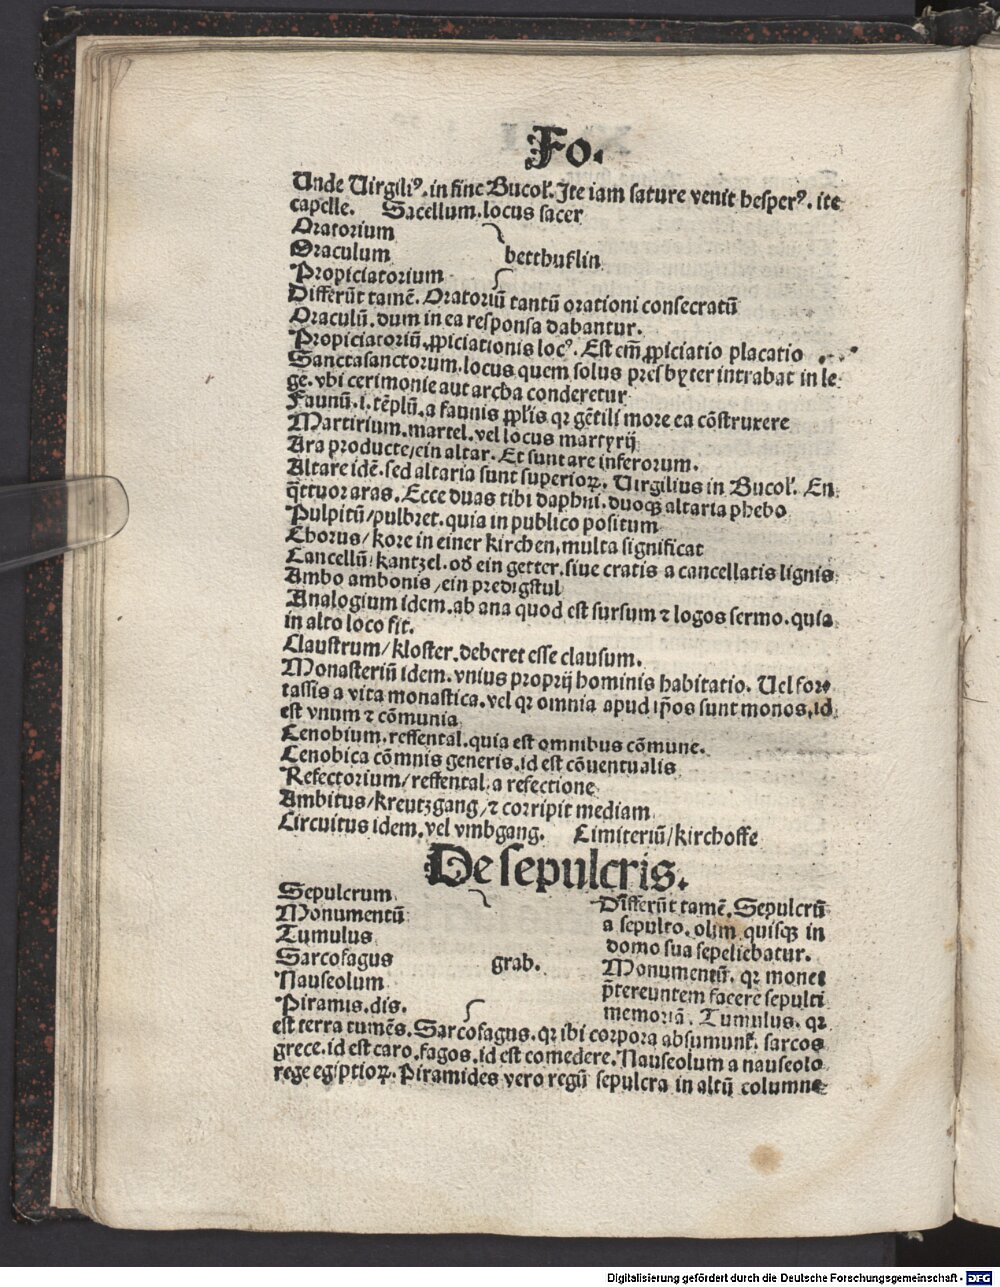 Fo.
Unde Uirgiliꝰ. in fine Bucol̄. Ite iam sature venit hesperꝰ. ite
capelle. Sacellum. locus sacer
Oratorium
Oraculum
betthußlin
Propiciatorium
Differūt tamē. Oratoriū tantū orationi consecratū
Oraculū. dum in ea responsa dabantur.
Propiciatoriū. ꝓpiciationis locꝰ. Est em̄ ꝓpiciatio placatio
Sanctasanctorum. locus quem solus presbyter intrabat in le
ge. vbi cerimonie aut archa conderetur
Faunū. i. tēplū. a faunis ꝓprijs qꝛ gētili more ea cōstruxere
Martirium. martel. vel locus martyrij
Ara producte/ein altar. Et sunt are inferorum.
Altare idē. sed altaria sunt superioꝝ. Uirgilius in Bucol̄. En
q̄ttuor aras. Ecce duas tibi daphni. duoqꝫ altaria phebo
Pulpitū/pulbret. quia in publico positum
Chorus/kore in einer kirchen, multa significat
Cancellū/kantzel. od̄ ein getter. siue cratis a cancellatis lignis
Ambo ambonis/ein predigstul
Analogium idem. ab ana quod est sursum ⁊ logos sermo. quia
in alto loco fit.
Claustrum/kloster. deberet esse clausum.
Monasteriū idem. vnius proprij hominis habitatio. Uel for⸗
tassis a vita monastica. vel qꝛ omnia apud ip̄os sunt monos, id
est vnum ⁊ cōmunia
Cenobium. reffental. quia est omnibus cōmune.
Cenobica cōmnis generis. id est cōuentualis
Refectorium/reffental. a refectione
Ambitus/kreutzgang/⁊ corripit mediam
Circuitus idem. vel vmbgang. Cimiteriū/kirchoffe
De sepulcris.
Sepulcrum
Monumentū
Tumulus
Sarcofagus
Nauseolum
Piramis. dis.
grab.
Differūt tamē. Sepulcrū
a sepulto. olim quisqꝫ in
domo sua sepeliebatur.
Monumentū. qꝛ monet
p̄tereuntem facere sepulti
memoriā. Tumulus. qꝛ
est terra tumēs. Sarcofagus. qꝛ ibi corpora absumunt̄. sarcos
grece. id est caro. fagos. id est comedere. Nauseolum a nauseolo
rege egiptioꝝ. Piramides vero regū sepulcra in altū columne
Digitalisierung gefördert durch die Deutsche Forschungsgemeinschaft - DFG